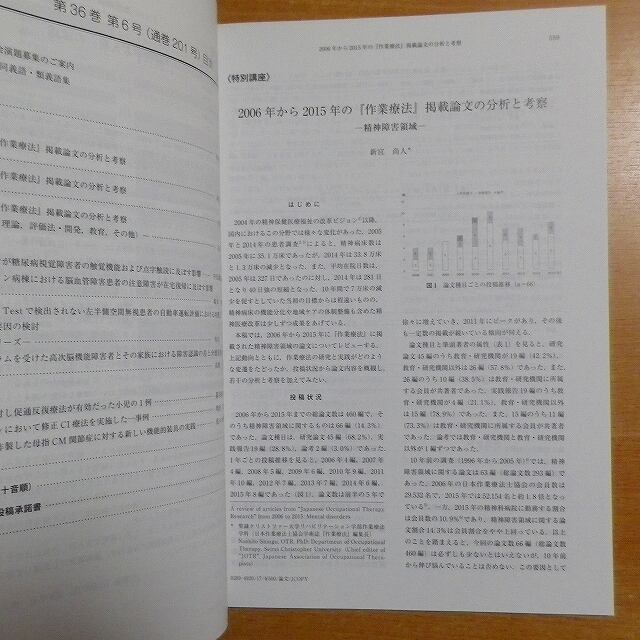 第36巻 第6号（通巻201号）目次
会演題募集のご案内
同義語・類義語集
作業療法』掲載論文の分析と考察
作業療法』掲載論文の分析と考察
作業療法』掲載論文の分析と考察
理論，評価法・開発，教育，その他）
が糖尿病視覚障害者の触覚機能および点字触読に及ぼす影響
ン病棟における脳血管障害患者の注意障害が在宅復帰に及ぼす影響
Test で検出されない左半側空間無視患者の自動車運転評価における
要因の検討
リーズ
ラムを受けた高次脳機能障害者とその家族における障害認識の差と
対し促通反復療法が有効だった小児の1例
において修正CI療法を実施した一事例
作製した母指CM関節症に対する新しい機能的装具の実践
十音順）
投稿承諾書
2006年から2015年の『作業療法』掲載論文の分析と考察
559
《特別講座》
2006年から2015年の『作業療法』掲載論文の分析と考察
―精神障害領域―
新宮 尚人*
はじめに
2004年の精神保健医療福祉の改革ビジョン以降，
国内におけるこの分野では様々な変化があった．2005
年と2014年の患者調査によると，精神病床数は
2005年に35.1万床であったが，2014年は33.8万床
と1.3万床の減少となった．また，平均在院日数は，
2005年は327日であったのに対し，2014年は281日
となり40日強の短縮となった．10年間で7万床の減
少を促すとしていた当初の目標からは程遠いものの，
精神病床の機能分化や地域ケアの体制整備も含めた精
神医療改革は少しずつ成果をあげている．
本稿では，2006年から2015年に『作業療法』に掲
載された精神障害領域の論文についてレビューする．
上記動向とともに，作業療法の研究と実践がどのよう
な変遷をたどったか，投稿状況から論文内容を概観し，
若干の分析と考察を加えてみたい．
投稿状況
2006年から2015年までの総論文数は460編で，そ
のうち精神障害領域に関するものは66編（14.3%）
であった．論文種目は，研究論文45編（68.2%），実
践報告19編（28.8%），論考2編（3.0%）であった．
1年ごとの投稿推移を見ると，2006年4編，2007年
4編，2008年5編，2009年6編，2010年9編，2011年
10編，2012年7編，2013年7編，2014年6編，
2015年8編であった（図1）．論文数は前半の5年で
A review of articles from "Japanese Occupational Therapy
Research" from 2006 to 2015: Mental disorders
* 聖隷クリストファー大学リハビリテーション学部作業療法
学科（日本作業療法士協会学術誌『作業療法』編集長）
Naohito Shingu, OTR, PhD: Department of Occupational
Therapy, Seirei Christopher University (Chief editor of
"JOTR", Japanese Association of Occupational Thera-
pists)
0289-4920/17/¥500/論文/JCOPY
図1 論文種目ごとの投稿推移（n=66）
徐々に増えていき，2011年にピークがあり，その後
も一定数の掲載が続いている傾向が伺える．
論文種目と筆頭著者の属性（表1）を見ると，研究
論文45編のうち教育・研究機関が19編（42.2%），教
育・研究機関以外は26編（57.8%）であった．また，
26編のうち10編（38.5%）は教育・研究機関に所属
する会員が共著者であった．実践報告19編のうち教
育・研究機関が4編（21.1%），教育・研究機関以外
は15編（78.9%）であった．また，15編のうち11編
（73.3%）は教育・研究機関に所属する会員が共著者
であった．論考では教育・研究機関と教育・研究機関
以外が1編ずつであった．
10年前の調査（1996年から2005年）では，精神
障害領域に関する論文は63編（総論文数293編）で
あった．2006年の日本作業療法士協会の会員数は
29,532名で，2015年では52,154名と約1.8倍となっ
ている．一方，2015年の精神科病院に勤務する割合
は会員数の10.9%であり，精神障害領域に関する論
文割合14.3%は会員割合をやや上回っている．以上
のことを踏まえると，今回の論文数66編（総論文数
460編）は必ずしも少ないとはいえないが，10年前
から伸び悩んでいることは否めない．この要因として